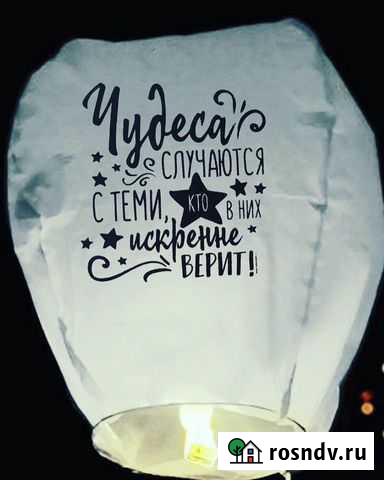 Чудеса
СЛУЧАЮТСЯ
С ТЕМИ, КТО В НИХ
искренне
ВЕРИТ!
rosndv.ru